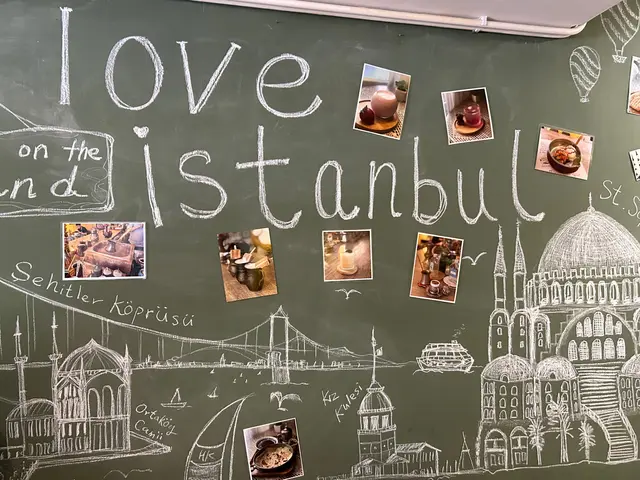 love
on the
istanbul
nd
St. S
Şehitler Köprüsü
Kız
Kulesi
Ortaköy
Camii
HK